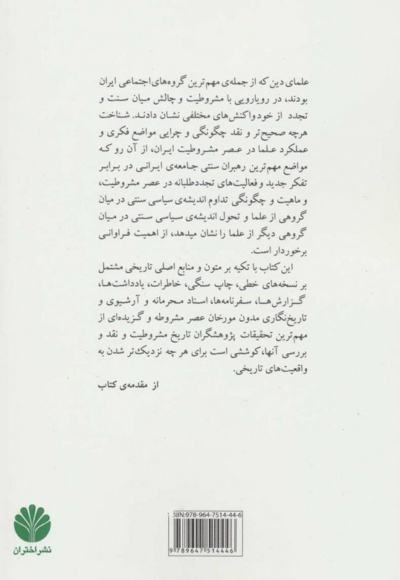 علمای دین که از جمله‌ی مهم‌ترین گروه‌های اجتماعی ایران
بودند، در رویارویی با مشروطیت و چالش میان سنت و
تجدد از خود واکنش‌های مختلفی نشان دادند. شناخت
هرچه صحیح‌تر و نقد چگونگی و چرایی مواضع فکری و
عملکرد علما در عصر مشروطیت ایران، از آن رو که
مواضع مهم‌ترین رهبران سنتی جامعه‌ی ایرانی در برابر
تفکر جدید و فعالیت‌های تجددطلبانه در عصر مشروطیت،
و ماهیت و چگونگی تداوم اندیشه‌ی سیاسی سنتی در میان
گروهی از علما و تحول اندیشه‌ی سیاسی سنتی در میان
گروهی دیگر از علما را نشان میدهد، از اهمیت فراوانی
برخوردار است.
این کتاب با تکیه بر متون و منابع اصلی تاریخی مشتمل
بر نسخه‌های خطی، چاپ سنگی، خاطرات، یادداشت‌ها،
گزارش‌ها، سفرنامه‌ها، اسناد محرمانه و آرشیوی و
تاریخ‌نگاری مدون مورخان عصر مشروطه و گزیده‌ای از
مهم‌ترین تحقیقات پژوهشگران تاریخ مشروطیت و نقد و
بررسی آنها، کوششی است برای هر چه نزدیک‌تر شدن به
واقعیت‌های تاریخی.
از مقدمه‌ی کتاب
ISBN: 978-964-7514-44-6
9 789647 514446
نشر اختران